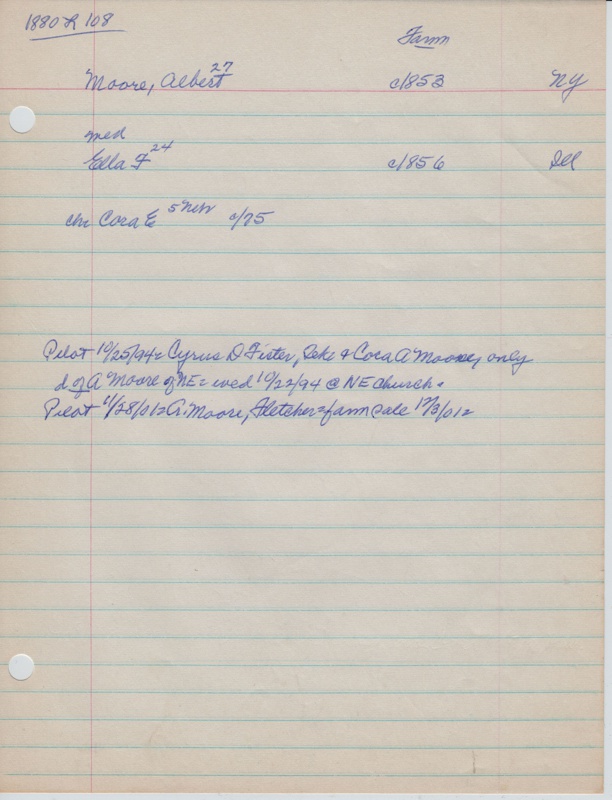 1880 R 108
Farm
Moore, Albert 27 c1853 NY
med
Ella F 24 c1856 Ill
chr Cora E 5 c/75
Pilot 10/25/94= Cyrus D Fister, & Cora A Moore, only
d of A Moore of NE= wed 10/22/94 @ NE church.
Pilot 11/28/01= A. Moore, Fletcher= farm sale 12/3/01=